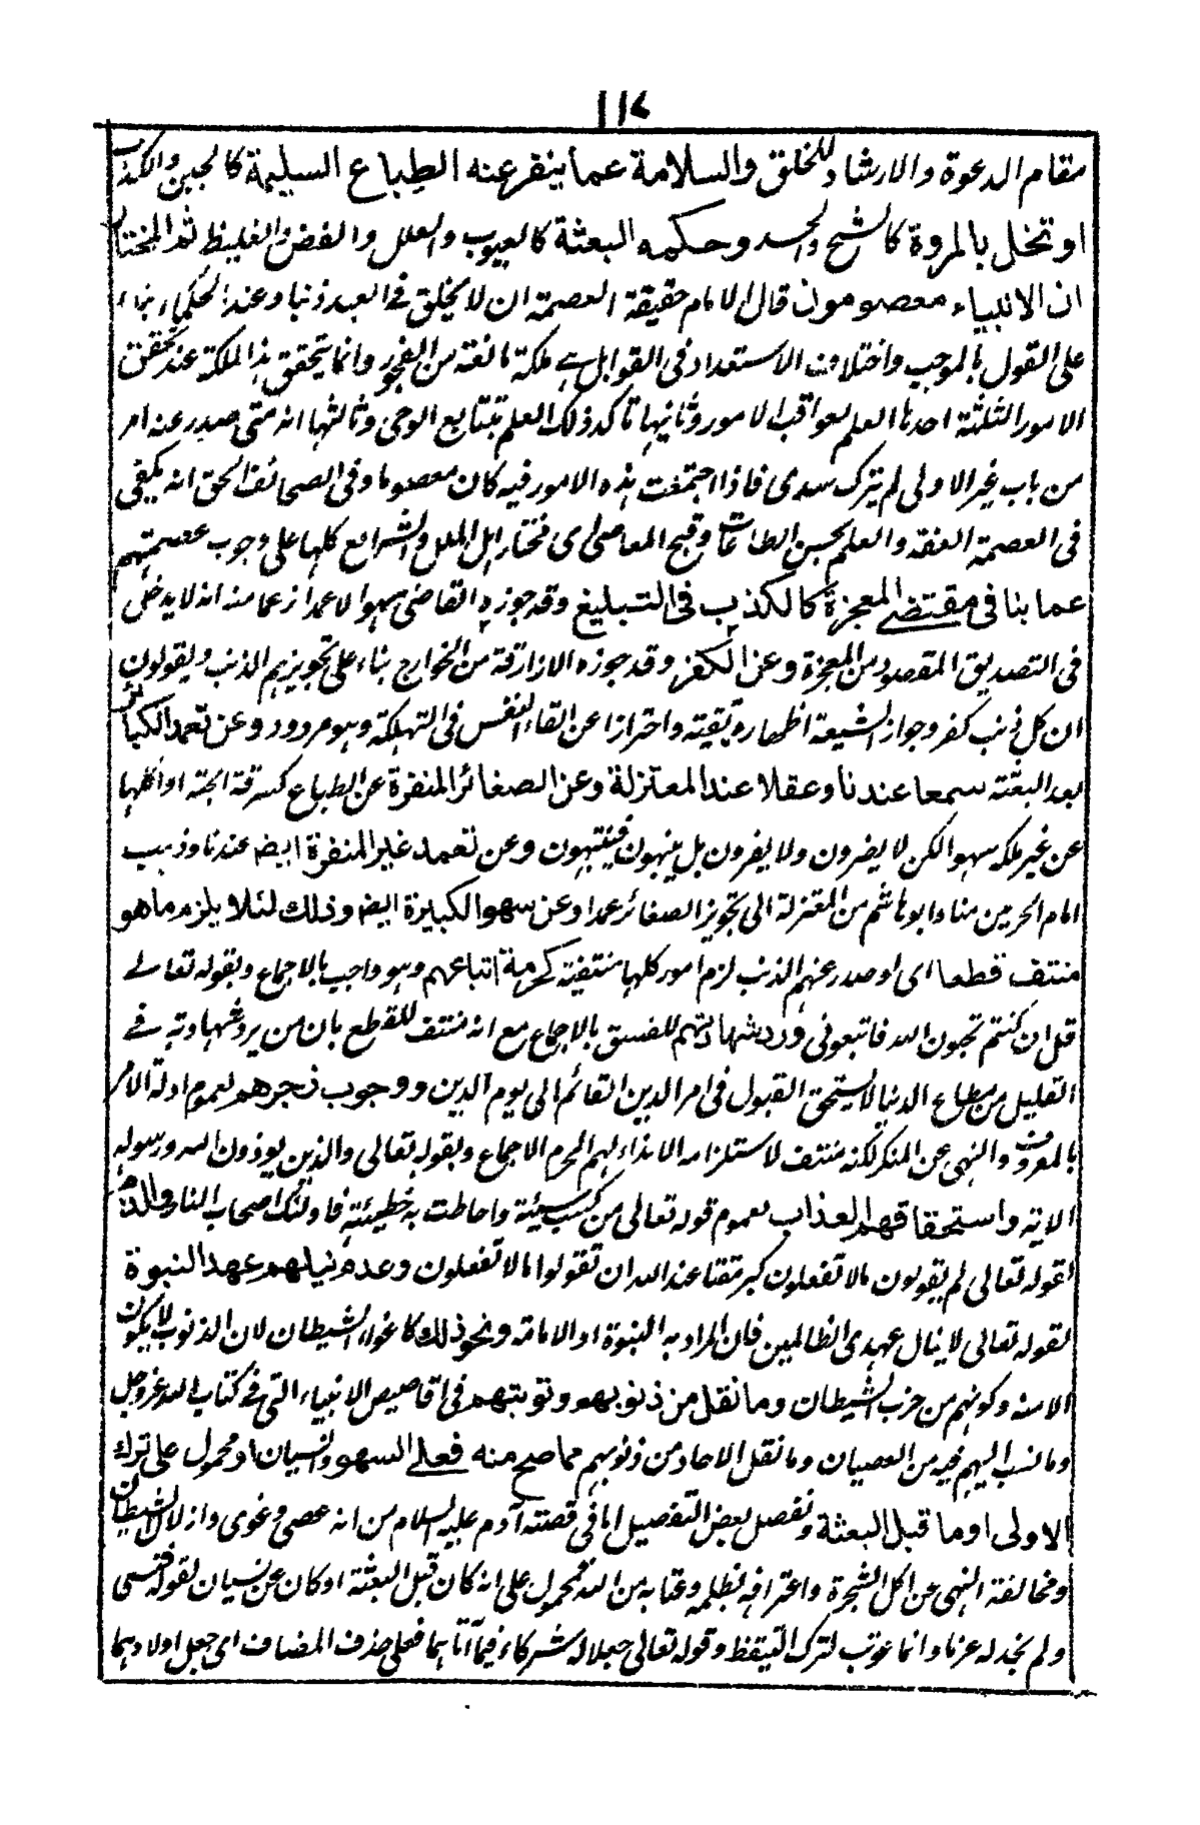 ١١٧
مقام الدعوة والارشاد للخلق والسلامة عما ينفر عنه الطباع السليمة كالجبن والكذب
او تخل بالمروة كالشح والحسد وحكمه البعثة كالعيوب والعلل والفض والغليظ ثم المختار
ان الانبياء معصومون قال الامام حقيقة العصمة ان لا يخلق فى العبد ذنبا وعند الحكماء بناء
على القول بالموجب واختلاف الاستعداد فى القوابل هى ملكة مانعة من الفجور وانما يتحقق هذا الملكة عند تحقق
الامور الثلثة احدها العلم بعواقب الامور وثانيها تاكد ذلك العلم بتتابع الوحى وثالثها انه متى صدر عنه امر
من باب غير الاولى لم يترك سدى فاذا اجتمعت هذه الامور فيه كان معصوما وفى الصحائف الحق انه يكفى
فى العصمة العفة والعلم بحسن الطاعات وقبح المعاصى اى فنختار اهل الملل والشرائع كلها على وجوب عصمتهم
عما ينافى مقتضى المعجزة كالكذب فى التبليغ وقد جوزه القاضى سهوا لا عمدا زعما منه انه لا يدخل
فى التصديق المقصود من المعجزة وعن الكفر وقد جوزه الازارقة من الخوارج بناء على تجويزهم الذنب ويقولون
ان كل ذنب كفر وجواز الشيعة اظهاره تقيته واحترازا عن القاء النفس فى التهلكة وهو مردود وعن تعمد الكبائر
بعد البعثة سمعا عندنا وعقلا عند المعتزلة وعن الصغائر المنفرة عن الطباع كسرقة الحبة او اكلها
عن غير ملكه سهوا لكن لا يضرون ولا يفرون بل ينبهون فينتبهون وعن تعمد غير المنفرة ايضا عندنا وذهب
امام الحرمين منا وابو هاشم من المعتزلة الى تجويز الصغائر عمدا وعن سهو الكبيرة ايضا وذلك لئلا يلزم ما هو
منتف قطعا اى لو صدر عنهم الذنب لزم امور كلها منتفية كحرمة اتباعهم وهو واجب بالاجماع وبقوله تعالى
قل ان كنتم تحبون الله فاتبعونى ورد شهادتهم للفسق بالاجماع مع انه منتف للقطع بان من يرد شهادته فى
القليل من متاع الدنيا لا يستحق القبول فى امر الدين القائم الى يوم الدين ووجوب زجرهم لعموم ادلة الامر
بالمعروف والنهى عن المنكر لكنه منتف لاستلزامه الايذاء لهم المحرم الاجماع وبقوله تعالى والذين يوذون الله ورسوله
الاية واستحقاقهم العذاب لعموم قوله تعالى من كسب سيئة واحاطت به خطيئته فاولئك اصحاب النار والذم
لقوله تعالى لم يقولون مالا تفعلون كبر مقتا عند الله ان تقولوا مالا تفعلون وعدم نيلهم عهد النبوة
لقوله تعالى لا ينال عهدى الظالمين فان المراد به النبوة او الامامة ونحو ذلك كاغواء الشيطان لان الذنوب لا يكون
الا منه وكونهم من حزب الشيطان وما نقل من ذنوبهم وتوبتهم فى اقاصيص الانبياء التى فى كتاب الله عز وجل
وما نسب اليهم فيه من العصيان وما نقل الاحاد من ذنوبهم مما صح منه فعلى السهو والنسيان او محمول على ترك
الاولى او ما قبل البعثة ونفصل بعض التفصيل اما فى قصته آدم عليه السلام من انه عصى وغوى وازلال الشيطان
ومخالفة النهى عن اكل الشجرة واعترافه بظلمه وعتابه من الله فمحمول على انه كان قبل البعثة او كان عن نسيان لقوله فنسى
ولم نجد له عزما وانما عوتب لترك التيقظ وقوله تعالى جعلا له شركاء فيما آتاهما فعلى حذف المضاف اى جعل اولادهما